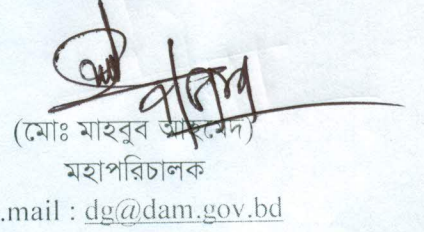 (মোঃ মাহবুব আহমেদ)
মহাপরিচালক
.mail : dg@dam.gov.bd